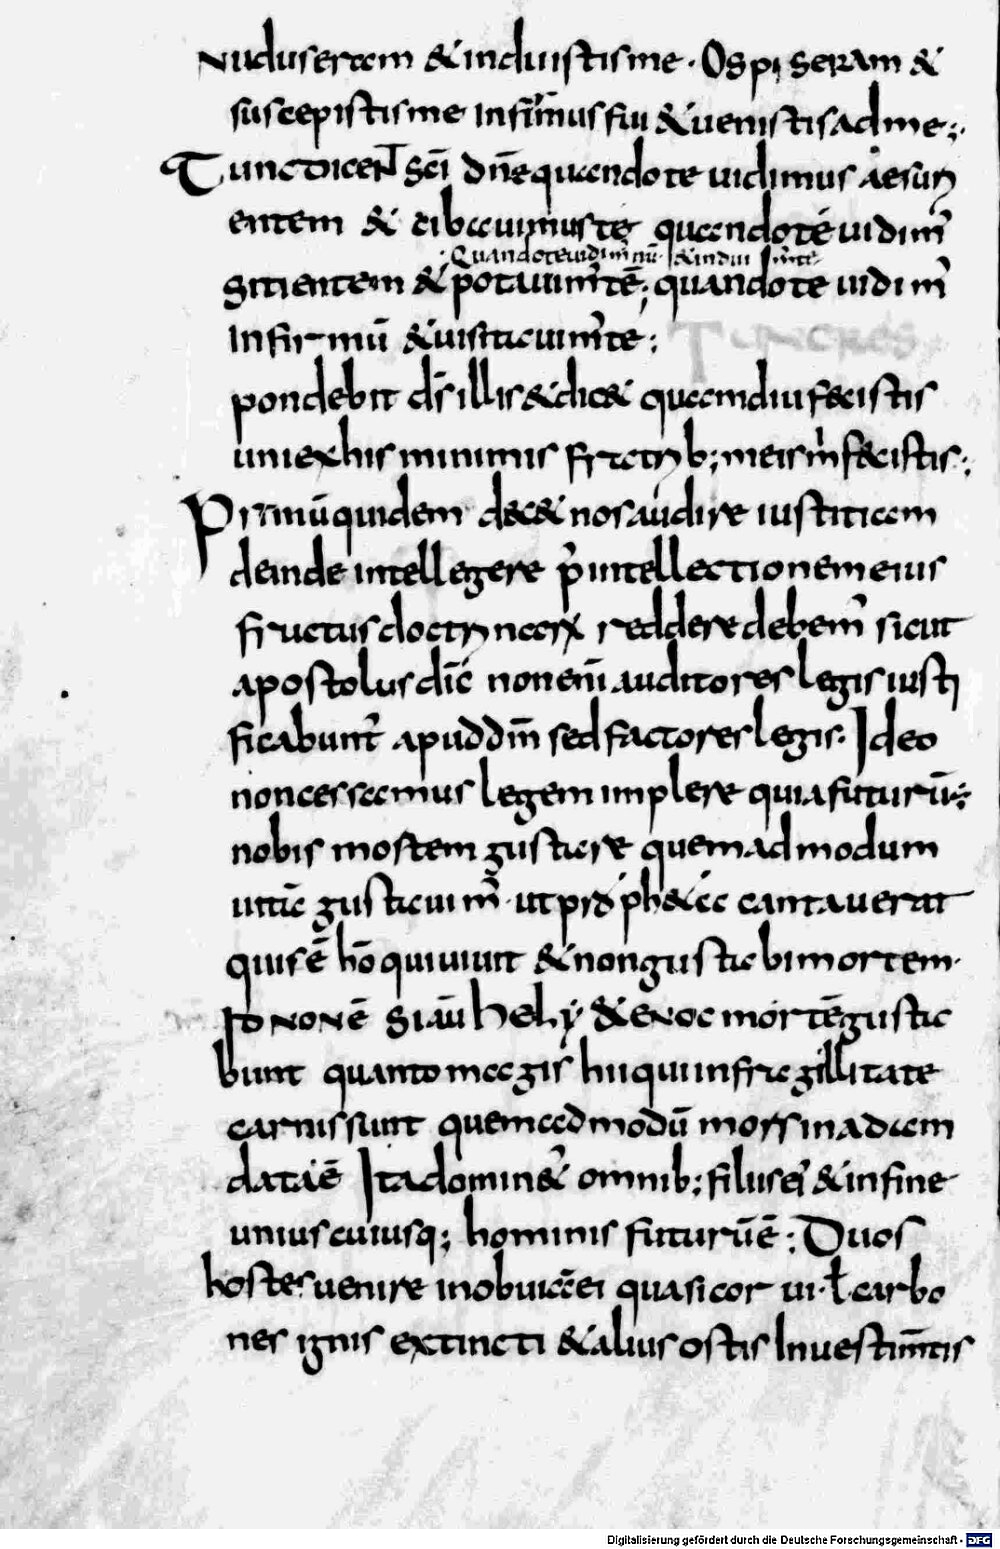 nudus eram & induistis me · Ospis eram &
suscepistis me Infirmus fui & uenistis ad me ;·
Tunc dicent sci dne quando te uidimus aesuri
entem & cibauimus te quando te uidim
Quando te uidim nu & indui m te
sitientem & potauim te ; quando te uidim
Infirmū & uisitauim te ;
Tunc res
pondebit ds illis & dic& quamdiu fecistis
uni ex his minimis fratrib; meis m fecistis ;
Primū quidem dec& nos audire iustitiam
deinde intellegere p intellectionem eius
fructus doctrinarum reddere debem sicut
apostolus dic non eni auditores legis iusti
ficabunt apud dm sed factores legis · Ideo
non cessamus legem implere quia futurū ē
nobis mostem gustare quemadmodum
utic gustauim ut pro ph&a cantauerat
quis ē ho qui uiuit & non gustabi mortem·
Id non ē si au hely & enoc mortē gusta
bunt quanto magis hii qui in fragillitate
carnis sunt quemadmodū mors in adam
data ē Ita domin& omnib; filiis ei & in fine
unius cuiusq; hominis futurū ē ; Duos
hostes uenire in obuia ei quasi cor ui · ł carbo
nes ignis extincti & alius ostis In uestimtis
Digitalisierung gefördert durch die Deutsche Forschungsgemeinschaft - DFG